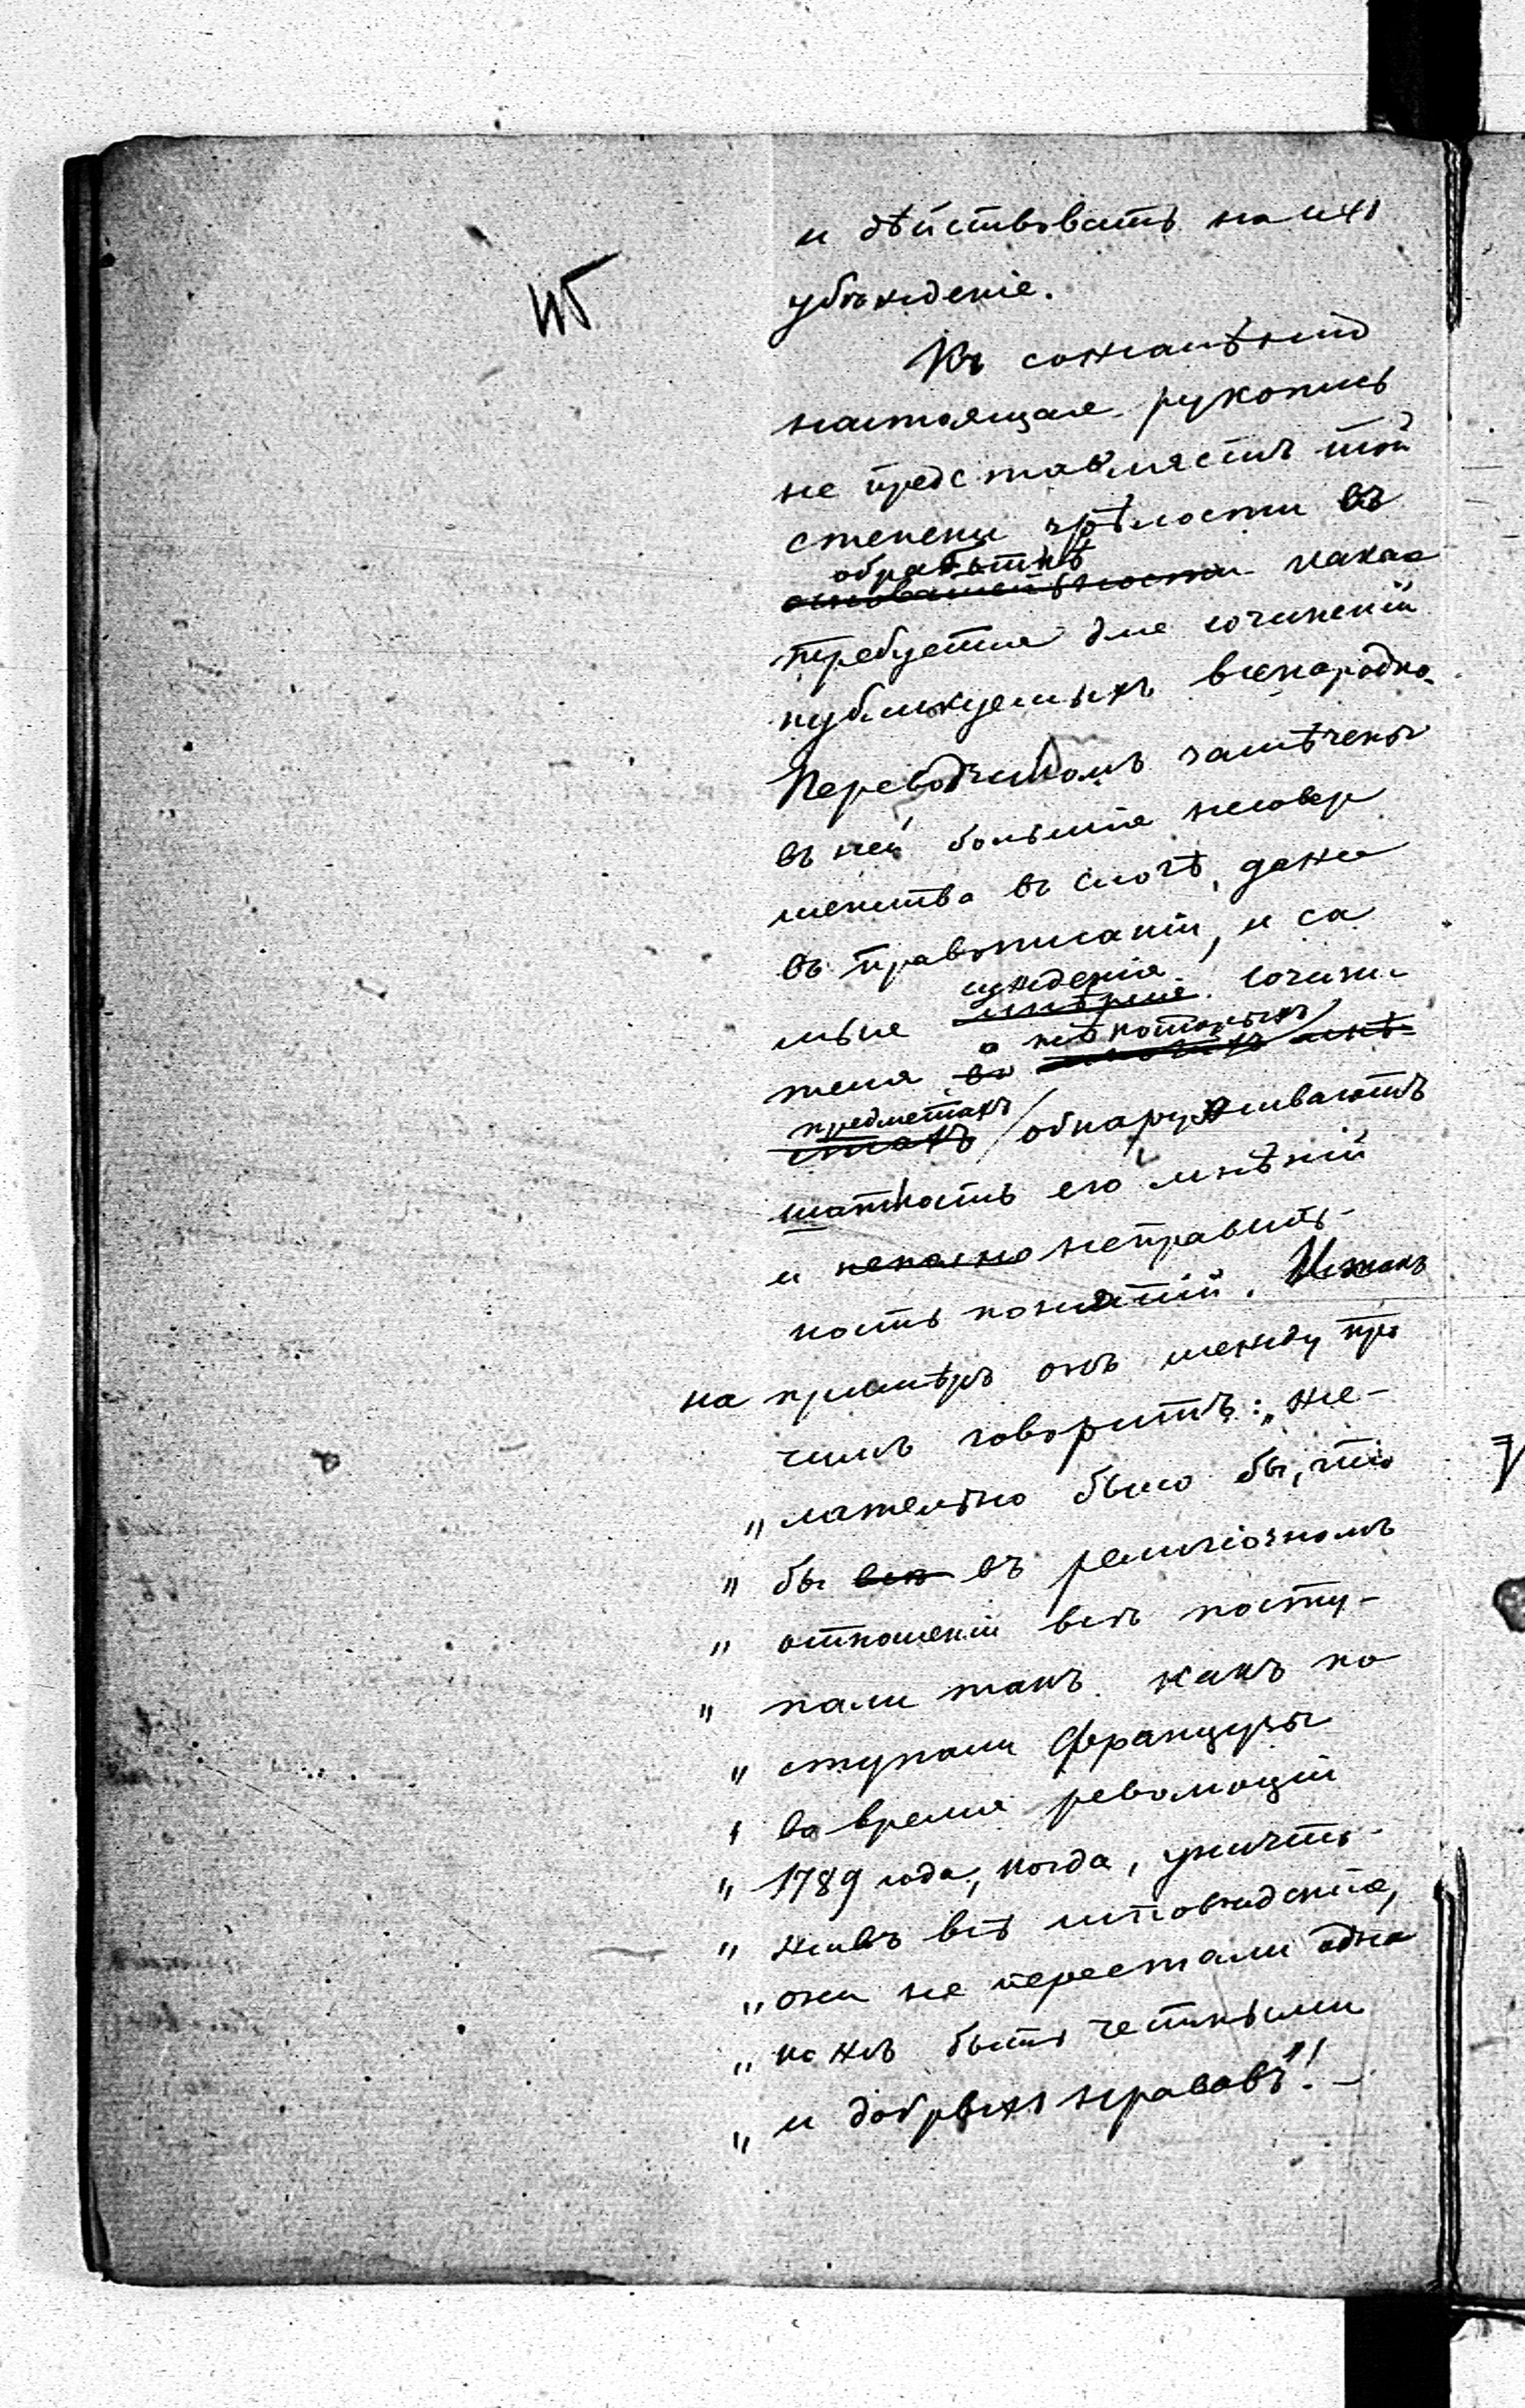 и дѣйствовать на ихъ
убѣжденіе.
Къ сожалѣнію
настоящая рукопись
не представляетъ той
степени зрѣлости въ
обработкѣ
какая
требуется для сочиненій
публикуемыхъ всенародно.
Переводчикомъ замѣчены
въ ней большія несовер
шенства въ слогѣ, даже
въ правописаніи, и са
сужденія
мые мнѣнія сочини-
о нѣкоторыхъ
теля во мнѣ-
предметахъ
стахъ обнаруживаютъ
шаткость его мнѣній
и неправиль-
ность понятій. Итакъ
на примѣръ онъ между про
чимъ говоритъ: „же-
„лательно было бы, что
„бы все въ религіозномъ
„отношеніи всѣ посту-
„пали такъ какъ по
„ступали Французы
„во время революціи
„1789 года, когда, уничто-
„живъ всѣ исповѣданія,
„они не перестали одна
„ко жъ быть честными
„и добрыхъ нравовъ"! —